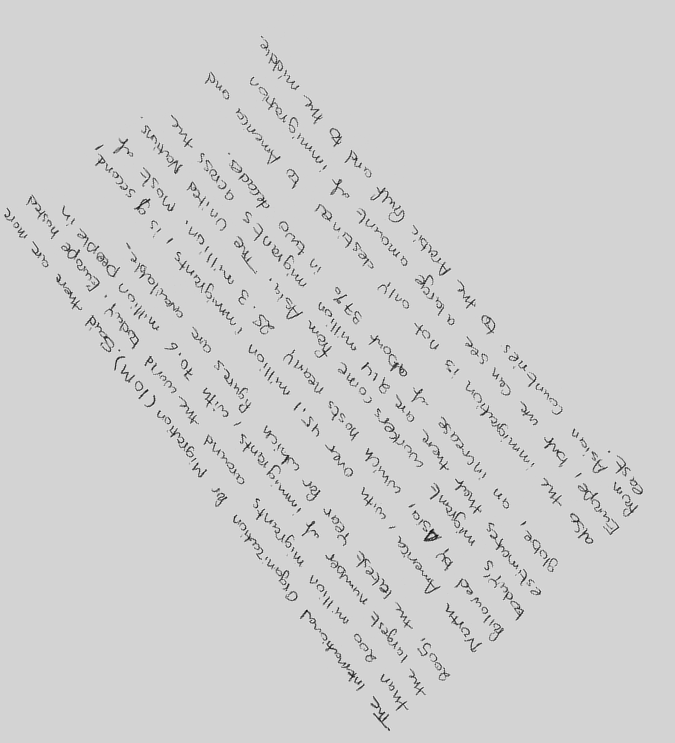 The International Organization for Migration (IOM). Said there are more
than 200 million migrants around the world today. Europe hosted
the largest number of immigrants, with 70.6 million people in
2005, the latest year for which figures are available.
North America, with over 45.1 million immigrants, is second,
followed by Asia, which hosts nearly 25.3 million. most of
today's migrant workers come from Asia. The United Nations
estimates that there are 214 million migrants across the
globe, an increase of about 37% in two decades.
also the immigration is not only destined to America and
Europe, but we can see a large amount of immigration
from Asian countries to the Arabic Gulf and to the middle
east.